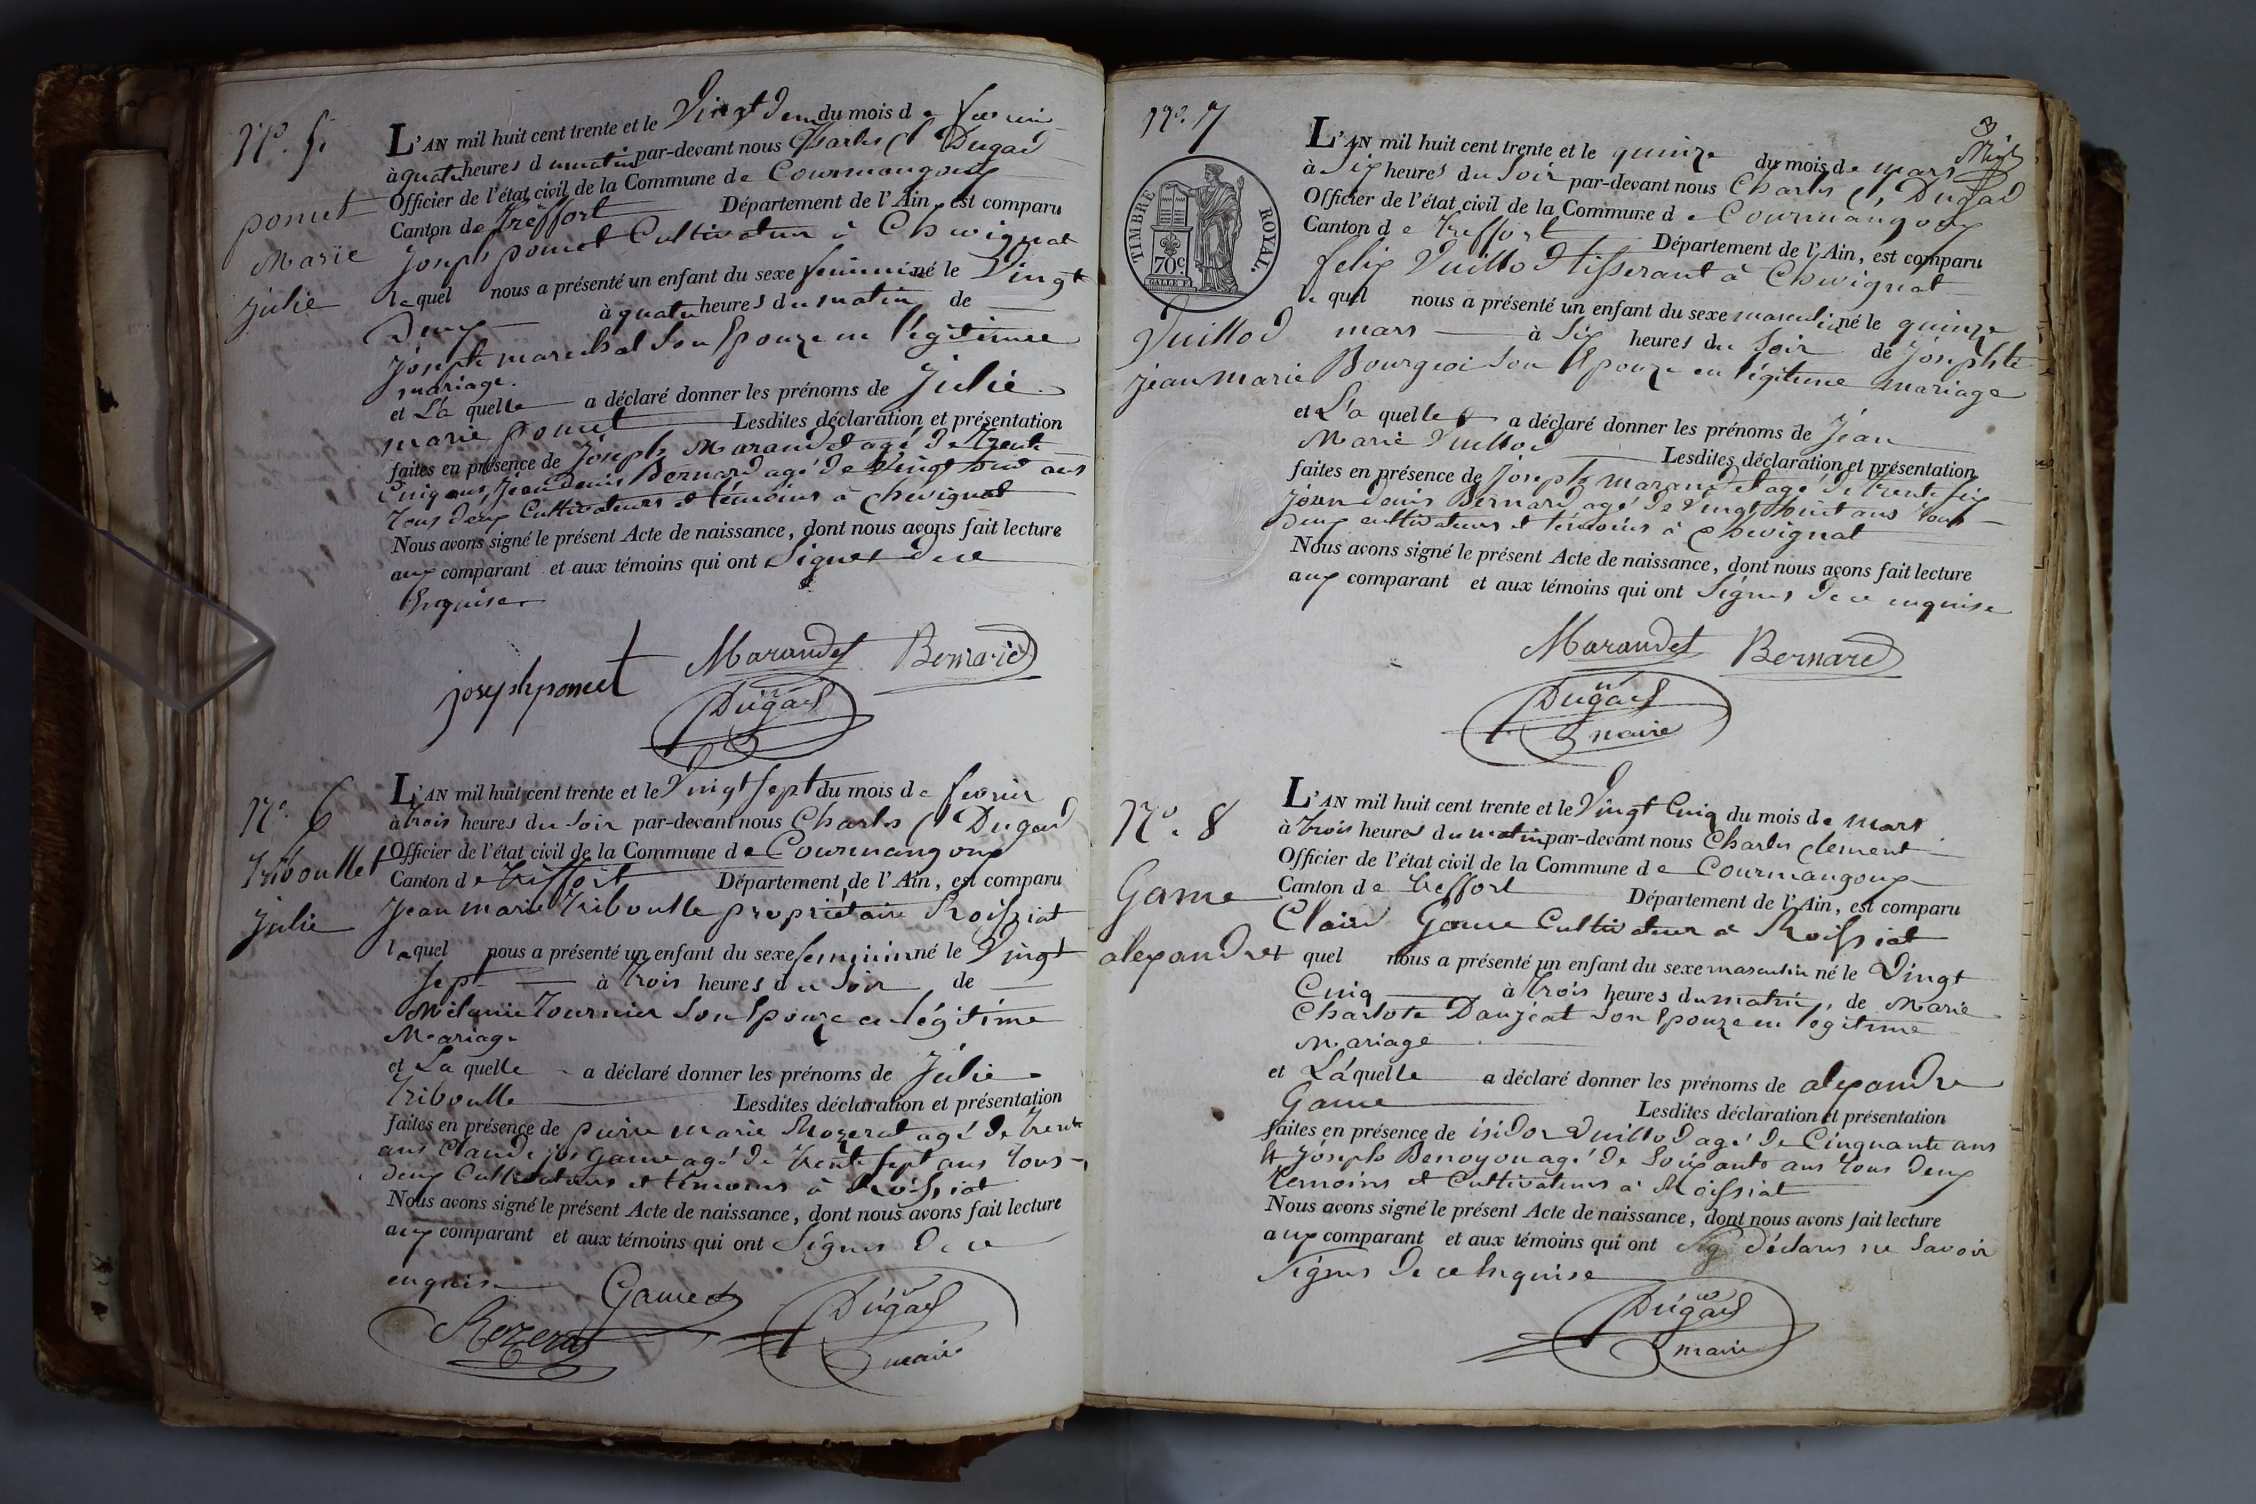 N.° 5.
pomet
Marie
julie
L'AN mil huit cent trente et le Vingt deux du mois de fevrier
à quatre heures du matin par-devant nous Charles C. Dugad
Officier de l'état civil de la Commune de Courmangoux
Canton de Treffort Département de l'Ain, est comparu
Joseph pomet Cultivateur à Chevignat
lequel nous a présenté un enfant du sexe feminin né le Vingt
Deux à quatre heures du matin de
Josephte marechal Son Epouze en légitimee
mariage.
et La quelle a déclaré donner les prénoms de Julie
marie pomet Lesdites déclaration et présentation
faites en présence de Joseph Marandet agé de Trente
Cinq ans, Jean Denis Bernard agé de Vingt ans
Tous deux Cultivateurs et témoins à Chevignat
Nous avons signé le présent Acte de naissance, dont nous avons fait lecture
aux comparant et aux témoins qui ont Signes de ce
Enquise
joseph pomet Marandet Bernard
Dugad
N.° 6
Triboullet
julie
L'AN mil huit cent trente et le Vingt Sept du mois de fevrier
à Trois heures du Soir par-devant nous Charles C Dugad
Officier de l'état civil de la Commune de Courmangoux
Canton de Treffort Département de l'Ain, est comparu
Jean marie Triboulle propriétaire Roissiat
lequel nous a présenté un enfant du sexe feminin né le Vingt
Sept à Trois heures du Soir de
Mélanie Tournier Son Epouze en légitime
Mariage
et La quelle a déclaré donner les prénoms de Julie
Triboulle Lesdites déclaration et présentation
faites en présence de pierre marie Rozerat agé de trente
ans Claude jos Game agé de trente Sept ans Tous
deux Cultivateurs et témoins à Roissiat
Nous avons signé le présent Acte de naissance, dont nous avons fait lecture
aux comparant et aux témoins qui ont Signes de ce
enquise Game Dugad
Rozerat maire
3
N.° 7
TIMBRE ROYAL.
70c
Vuillod
jean marie
L'AN mil huit cent trente et le quinze du mois de mars
à Six heures du Soir par-devant nous Charles C. Dugad
Officier de l'état civil de la Commune de Courmangoux
Canton de Treffort Département de l'Ain, est comparu
felix Vuillod tisserant à Chevignat
le quel nous a présenté un enfant du sexe masculin né le quinze
mars à Six heures du Soir de Josephte
Bourgeoi Son Epouze en légitime mariage
et La quelle a déclaré donner les prénoms de Jean
Marie Vuillod Lesdites déclaration et présentation
faites en présence de Joseph Marandet agé de trente Six
Jean Denis Bernard agé de Vingt huit ans tous
Deux cultivateurs et témoins à Chevignat
Nous avons signé le présent Acte de naissance, dont nous avons fait lecture
aux comparant et aux témoins qui ont Signes de ce enquise
Marandet Bernard
Dugad
maire
N.° 8
Game
alexandre
L'AN mil huit cent trente et le Vingt Cinq du mois de mars
à trois heures du matin par-devant nous Charles Clement
Officier de l'état civil de la Commune de Courmangoux
Canton de Treffort Département de l'Ain, est comparu
Claud Game Cultivateur à Roissiat
quel nous a présenté un enfant du sexe masculin né le Vingt
Cinq à Trois heures du matin, de Marie
Charlote Danjeat Son Epouze en légitime
Mariage
et La quelle a déclaré donner les prénoms de alexandre
Game Lesdites déclaration et présentation
faites en présence de isidor Vuillod agé de Cinquante ans
et Joseph Benoyon agé de Soixante ans Tous Deux
témoins et Cultivateurs à Roissiat
Nous avons signé le présent Acte de naissance, dont nous avons fait lecture
aux comparant et aux témoins qui ont déclares ne Savoir
Signes de ce Enquise
Dugad
maire